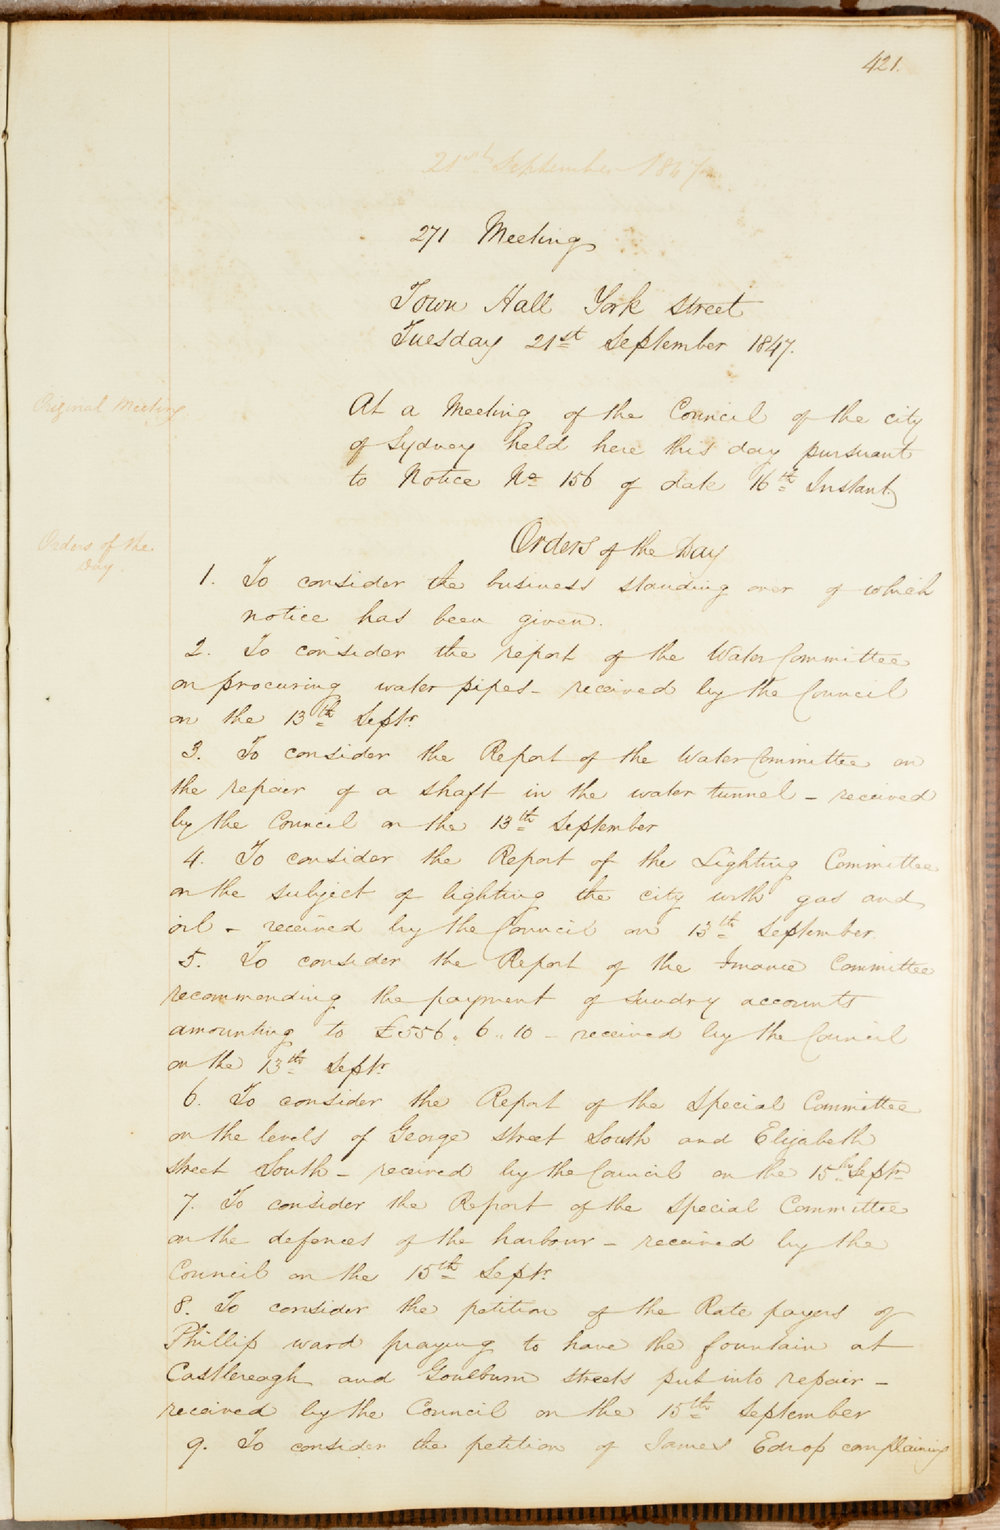 421.
21st September 1847
271 Meeting
Town Hall York Street
Tuesday 21st September 1847.
Original Meeting
At a Meeting of the Council of the city
of Sydney held here this day pursuant
to Notice No 156 of date 16th Instant
Orders of the Day
Orders of the
Day.
1. To consider the business standing over of which
notice has been given.
2. To consider the report of the Water Committee
on procuring water pipes - received by the Council
on the 13th Septr
3. To consider the Report of the Water Committee on
the repair of a shaft in the water tunnel - received
by the Council on the 13th September
4. To consider the Report of the Lighting Committee
on the subject of lighting the city with gas and
oil - received by the Council on 13th September.
5. To consider the Report of the Finance Committee
recommending the payment of sundry accounts
amounting to £556.. 6.. 10 - received by the Council
on the 13th Septr
6. To consider the Report of the Special Committee
on the levels of George Street South and Elizabeth
Street South - received by the Council on the 15th Septr
7. To consider the Report of the Special Committee
on the defences of the harbour - received by the
Council on the 15th Septr
8. To consider the petition of the Rate payers of
Phillip ward praying to have the fountain at
Castlereagh and Goulburn streets put into repair -
received by the Council on the 15th September
9. To consider the petition of James Edrop complaining